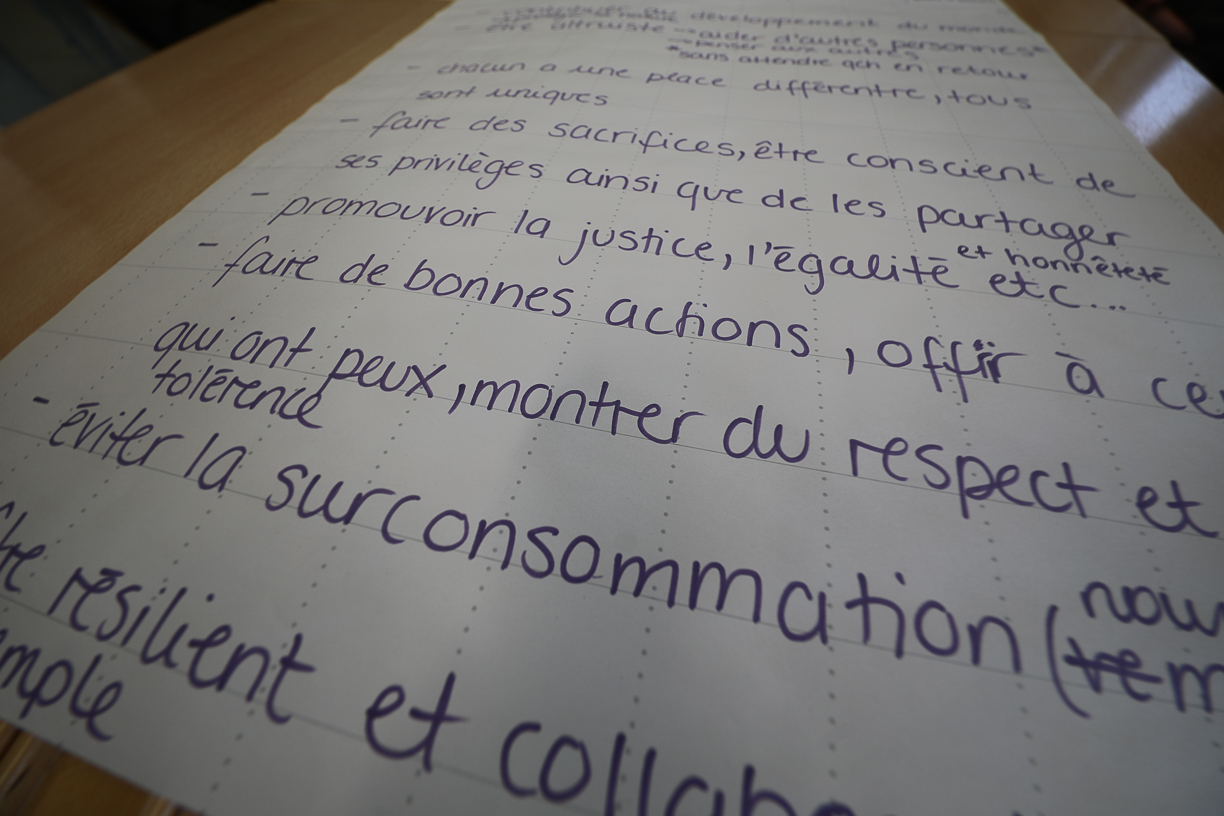 développement du monde
- être altruiste → aider d'autres personnes*
→ penser aux autres
*sans attendre qch en retour
- chacun a une place différentre, tous
sont uniques
- faire des sacrifices, être conscient de
ses privilèges ainsi que de les partager
- promouvoir la justice, l'égalité et honnêteté
etc...
- faire de bonnes actions, offrir à
qui ont peux, montrer du respect et
tolérence
- éviter la surconsommation (
résilient et